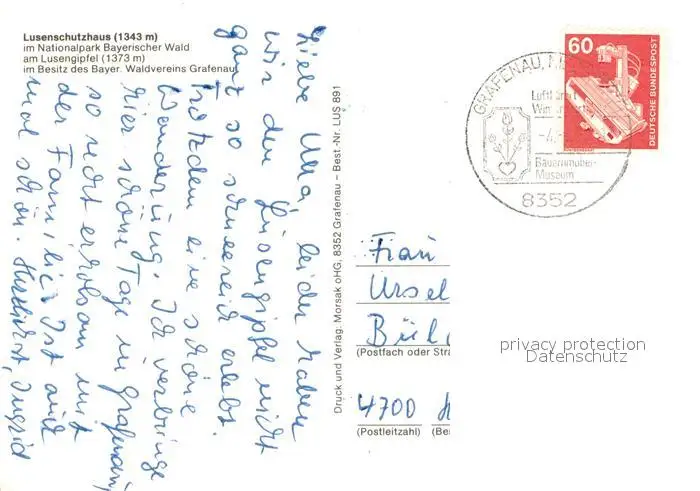 Lusenschutzhaus (1343 m)
im Nationalpark Bayerischer Wald
am Lusengipfel (1373 m)
im Besitz des Bayer. Waldvereins Grafenau
Liebe Ulla, leider haben
wir den Lusengipfel nicht
ganz so schneereich erlebt.
Trotzdem eine schöne
Wanderung. Ich verbringe
hier schöne Tage in Grafenau,
so recht erholsam mit
der Familie. Ist auch
mal schön. Herzlichst, Ingrid
Druck und Verlag: Morsak oHG, 8352 Grafenau – Best.-Nr. LUS 891
GRAFENAU,
Luft
Bauernmöbel-
Museum
8352
60
DEUTSCHE BUNDESPOST
Frau
Ursel
(Postfach oder Stra
4700
(Postleitzahl) (Be
privacy protection
Datenschutz